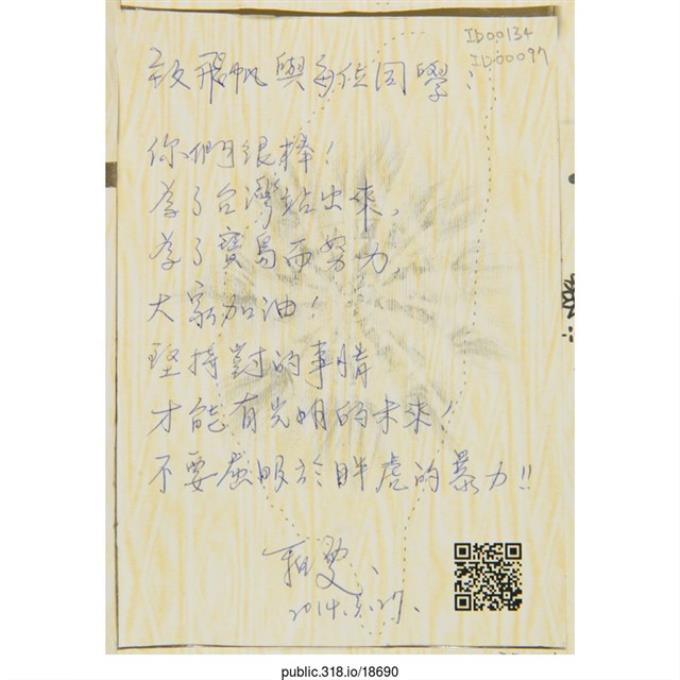 ID00134
ID00097
致飛帆與各位同學：
你們很棒！
為了台灣站出來，
為了寶島而努力，
大家加油！
堅持對的事情
才能有光明的未來！
不要屈服於
的暴力!!
2014.3.27.
public.318.io/18690